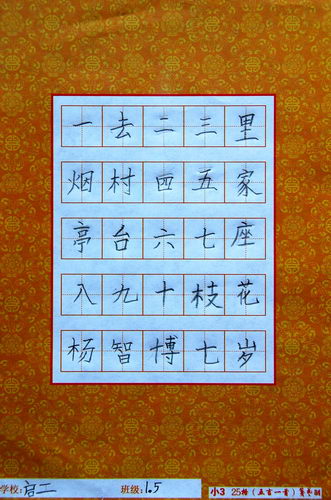 一去二三里
烟村四五家
亭台六七座
八九十枝花
杨智博七岁
学校:启二 班级:1.5 小3 25格(五言一首)